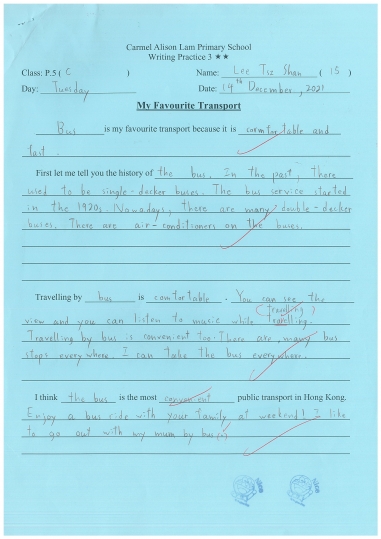 Carmel Alison Lam Primary School
Writing Practice 3 ★★
Class: P.5 ( C ) Name: Lee Tsz Shan ( 15 )
Day: Tuesday Date: 14th December, 2021
My Favourite Transport
Bus is my favourite transport because it is comfortable and
fast .
First let me tell you the history of the bus. In the past, there
used to be single-decker buses. The bus service started
in the 1920s. Nowadays, there are many double-decker
buses. There are air-conditioners on the buses.
Travelling by bus is comfortable . You can see the
(travelling)
view and you can listen to music while travelling.
Travelling by bus is convenient too. There are many bus
stops everywhere. I can take the bus everywhere.
I think the bus is the most convenient public transport in Hong Kong.
Enjoy a bus ride with your family at weekend! I like
to go out with my mum by bus